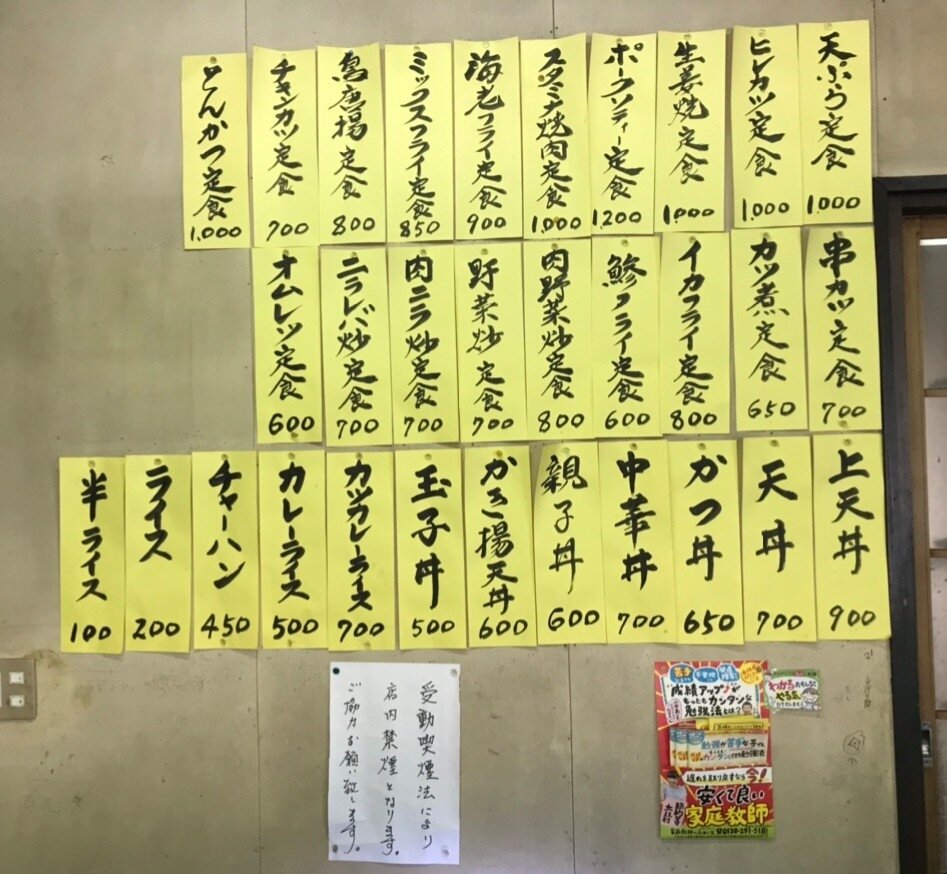 天ぷら定食
1.000
ヒレカツ定食
1.000
生姜焼定食
1.000
ポークソティー定食
1.200
スタミナ焼肉定食
1.000
海老フライ定食
900
ミックスフライ定食
850
鳥唐揚定食
800
チキンカツ定食
700
とんかつ定食
1.000
串カツ定食
700
カツ煮定食
650
イカフライ定食
800
鯵フライ定食
600
肉野菜炒定食
800
野菜炒定食
700
肉ニラ炒定食
700
ニラレバ炒定食
700
オムレツ定食
600
上天丼
900
天丼
700
かつ丼
650
中華丼
700
親子丼
600
かき揚天丼
600
玉子丼
500
カツカレーライス
700
カレーライス
500
チャーハン
450
ライス
200
半ライス
100
受動喫煙法により
店内禁煙となります。
ご協力お願い致します。
苦手
不登校
発達障害
成績アップが
もっともカンタンな
勉強法とは?
勉強が苦手な子でも
カンタンな勉強法
遅れを取り戻すなら今!
安くて良い
家庭教師
0120-291-5181
わかる
やる気